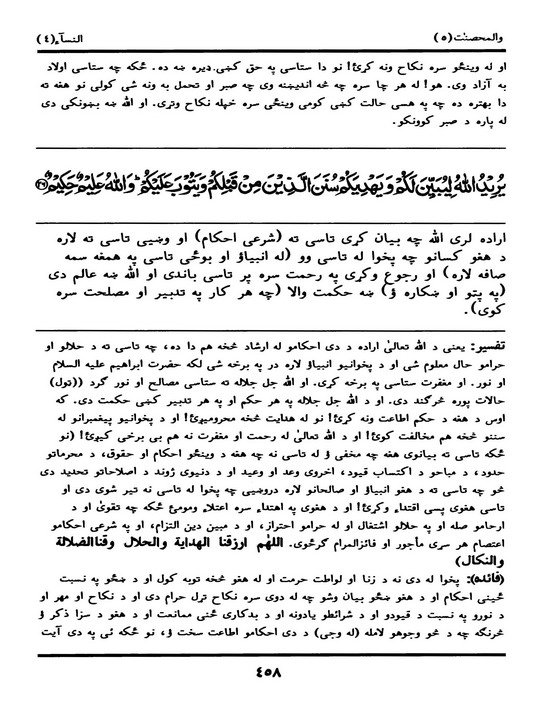 والمحصنٰت (٥) النسآء (٤)
او له وینځو سره نکاح ونه کړئ! نو دا ستاسي په حق کښي ډیره ښه ده. ځکه چه ستاسي اولاد
به آزاد وی. هو! له هر چا سره چه څه اندیښنه وی چه صبر او تحمل به ونه شی کولی نو هغه ته
دا بهتره ده چه په هسی حالت کښی کومی وینځی سره خپله نکاح وتړی. او الله ښه بښونکی دی
له پاره د صبر کوونکو.
يُرِيْدُ اللهُ لِيُبَيِّنَ لَكُمْ وَيَهْدِيَكُمْ سُنَنَ الَّذِيْنَ مِنْ قَبْلِكُمْ وَيَتُوْبَ عَلَيْكُمْ وَاللهُ عَلِيْمٌ حَكِيْمٌ ﴿٢٦﴾
اراده لری الله چه بیان کړی تاسی ته (شرعی احکام) او وښیی تاسی ته لاره
د هغو کسانو چه پخوا له تاسی وو (له انبیاؤ او بوځی تاسی په هغه سمه
صافه لاره) او رجوع وکړی په رحمت سره پر تاسی باندی او الله ښه عالم دی
(په پتو او ښکاره ؤ) ښه حکمت والا (چه هر کار په تدبیر او مصلحت سره
کوی).
تفسیر: یعنی د الله تعالیٰ اراده د دی احکامو له ارشاد څخه هم دا ده، چه تاسی ته د حلالو او
حرامو حال معلوم شی او د پخوانیو انبیاؤ لاره در په برخه شی لکه حضرت ابراهیم علیه السلام
او نور. او مغفرت ستاسی په برخه کړی. او الله جل جلاله ته ستاسی مصالح او نور گرد ((تول)
حالات پوره څرگند دی. او د الله جل جلاله په هر حکم او په هر تدبیر کښی حکمت دی. که
اوس د هغه د حکم اطاعت ونه کړئ! نو له هدایت څخه محرومیږئ! او د پخوانیو پیغمبرانو له
سننو څخه هم مخالفت کوئ! او د الله تعالیٰ له رحمت او مغفرت نه هم بی برخی کیږئ! (نو
ځکه تاسی ته بیانوی هغه چه مخفی ؤ له تاسی نه چه هغه د وینځو احکام او حقوق، د محرماتو
حدود، د مباحو د اکتساب قیود، اخروی وعد او وعید او د دنیوی ژوند د اصلاحاتو تحدید دی
څو چه تاسی ته د هغو انبیاؤ او صالحانو لاره دروښیی چه پخوا له تاسی نه تیر شوی دی او
تاسی هغوی پسی اقتداء وکړئ! او د هغوی په اهتداء سره اعتلاء ومومئ ځکه چه تقویٰ او د
ارحامو صله او په حلالو اشتغال او له حرامو احتراز، او د مبین دین التزام، او په شرعی احکامو
اعتصام هر سړی مأجور او فائزالمرام گرځوی. اللهم ارزقنا الهداية والحلال وقناالضلالة
والنكال)
(فائده): پخوا له دی نه د زنا او لواطت حرمت او له هغو څخه توبه کول او د ښځو په نسبت
ځینی احکام او د هغو ښځو بیان وشو چه له دوی سره نکاح ترل حرام دی او د نکاح او مهر او
د نورو په نسبت د قیودو او د شرائطو یادونه او د بدکاری ځنی ممانعت او د هغو د سزا ذکر ؤ
څرنگه چه د څو وجوهو لامله (له وجی) د دی احکامو اطاعت سخت ؤ، نو ځکه ئی په دی آیت
٤٥٨